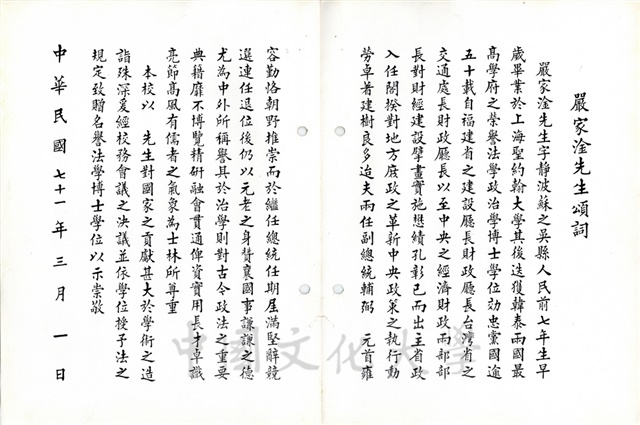 嚴家淦先生頌詞
嚴家淦先生字靜波蘇之吳縣人民前七年生早
歲畢業於上海聖約翰大學其後迭獲韓泰兩國最
高學府之榮譽法學政治學博士學位効忠黨國逾
五十載自福建省之建設廳長財政廳長台灣省之
交通處長財政廳長以至中央之經濟財政兩部部
長對財經建設擘畫實施懋績孔彰已而出主省政
入任閣揆對地方庶政之革新中央政策之執行勳
勞卓著建樹良多迨夫兩任副總統輔弼 元首雍
容勤恪朝野推崇而於繼任總統任期屆滿堅辭競
選連任退位後仍以元老之身贊襄國事謙謙之德
尤為中外所稱譽其於治學則對古今政法之重要
典籍靡不博覽精研融會貫通俾資實用長才卓識
亮節高風有儒者之氣象為士林所尊重
本校以 先生對國家之貢獻甚大於學術之造
詣殊深爰經校務會議之決議並依學位授予法之
規定致贈名譽法學博士學位以示崇敬
中華民國七十一年三月一日
中國文化大學